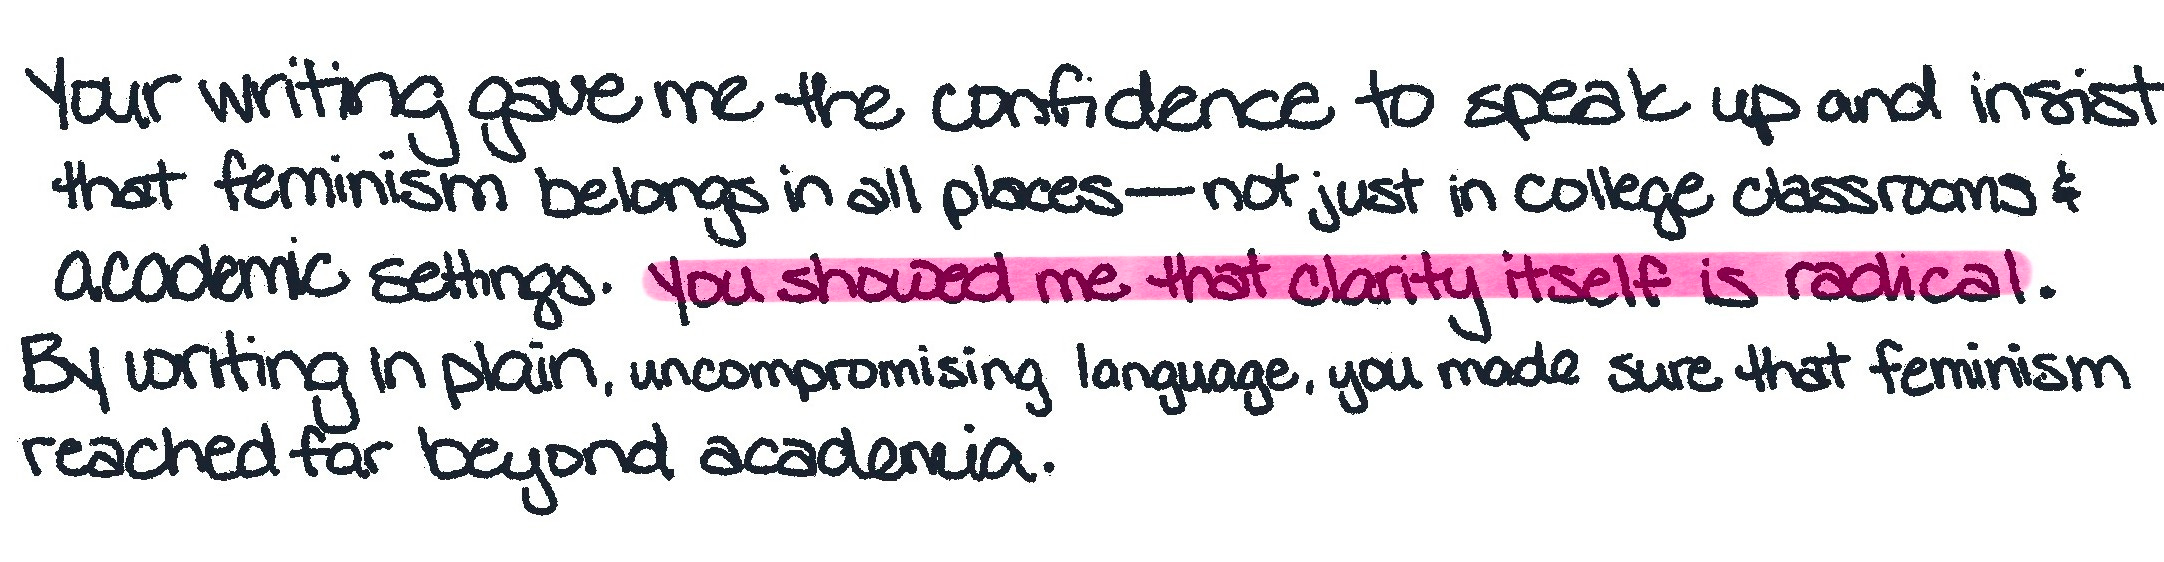 Your writing gave me the confidence to speak up and insist
that feminism belongs in all places—not just in college classrooms &
academic settings. You showed me that clarity itself is radical.
By writing in plain, uncompromising language, you made sure that feminism
reached far beyond academia.